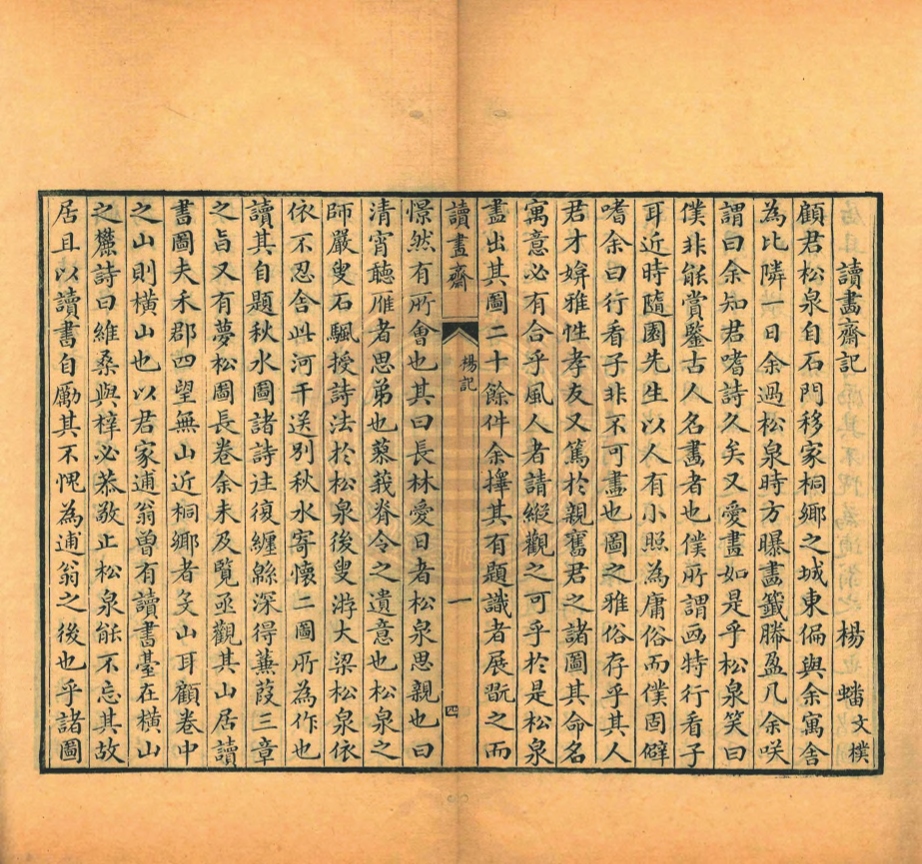 讀畫齋記
楊蟠文樸
顧君松泉自石門移家桐鄉之城東偏與余寓舍
為比隣一日余過松泉時方曝畫籤縢盈几余咲
謂曰余知君嗜詩久矣又愛畫如是乎松泉笑曰
僕非能賞鑒古人名畫者也僕所謂畫特行看子
耳近時隨園先生以人有小照為庸俗而僕固僻
嗜余曰行看子非不可畫也圖之雅俗存乎其人
君才妍雅性孝友又篤於親舊君之諸圖其命名
寓意必有合乎風人者請縱觀之可乎於是松泉
盡出其圖二十餘件余擇其有題識者展翫之而
讀畫齋
楊記
一
四
憬然有所會也其曰長林愛日者松泉思親也曰
清宵聽雁者思弟也蓼莪脊令之遺意也松泉之
師嚴叟石颿授詩法於松泉後叟游大梁松泉依
依不忍舍此河干送別秋水寄懷二圖所為作也
讀其自題秋水圖諸詩往復纏緜深得蒹葭三章
之旨又有夢松圖長卷余未及覽亟觀其山居讀
書圖夫禾郡四望無山近桐鄉者殳山耳顧卷中
之山則橫山也以君家逋翁曾有讀書臺在橫山
之麓詩曰維桑與梓必恭敬止松泉能不忘其故
居且以讀書自勵其不愧為逋翁之後也乎諸圖